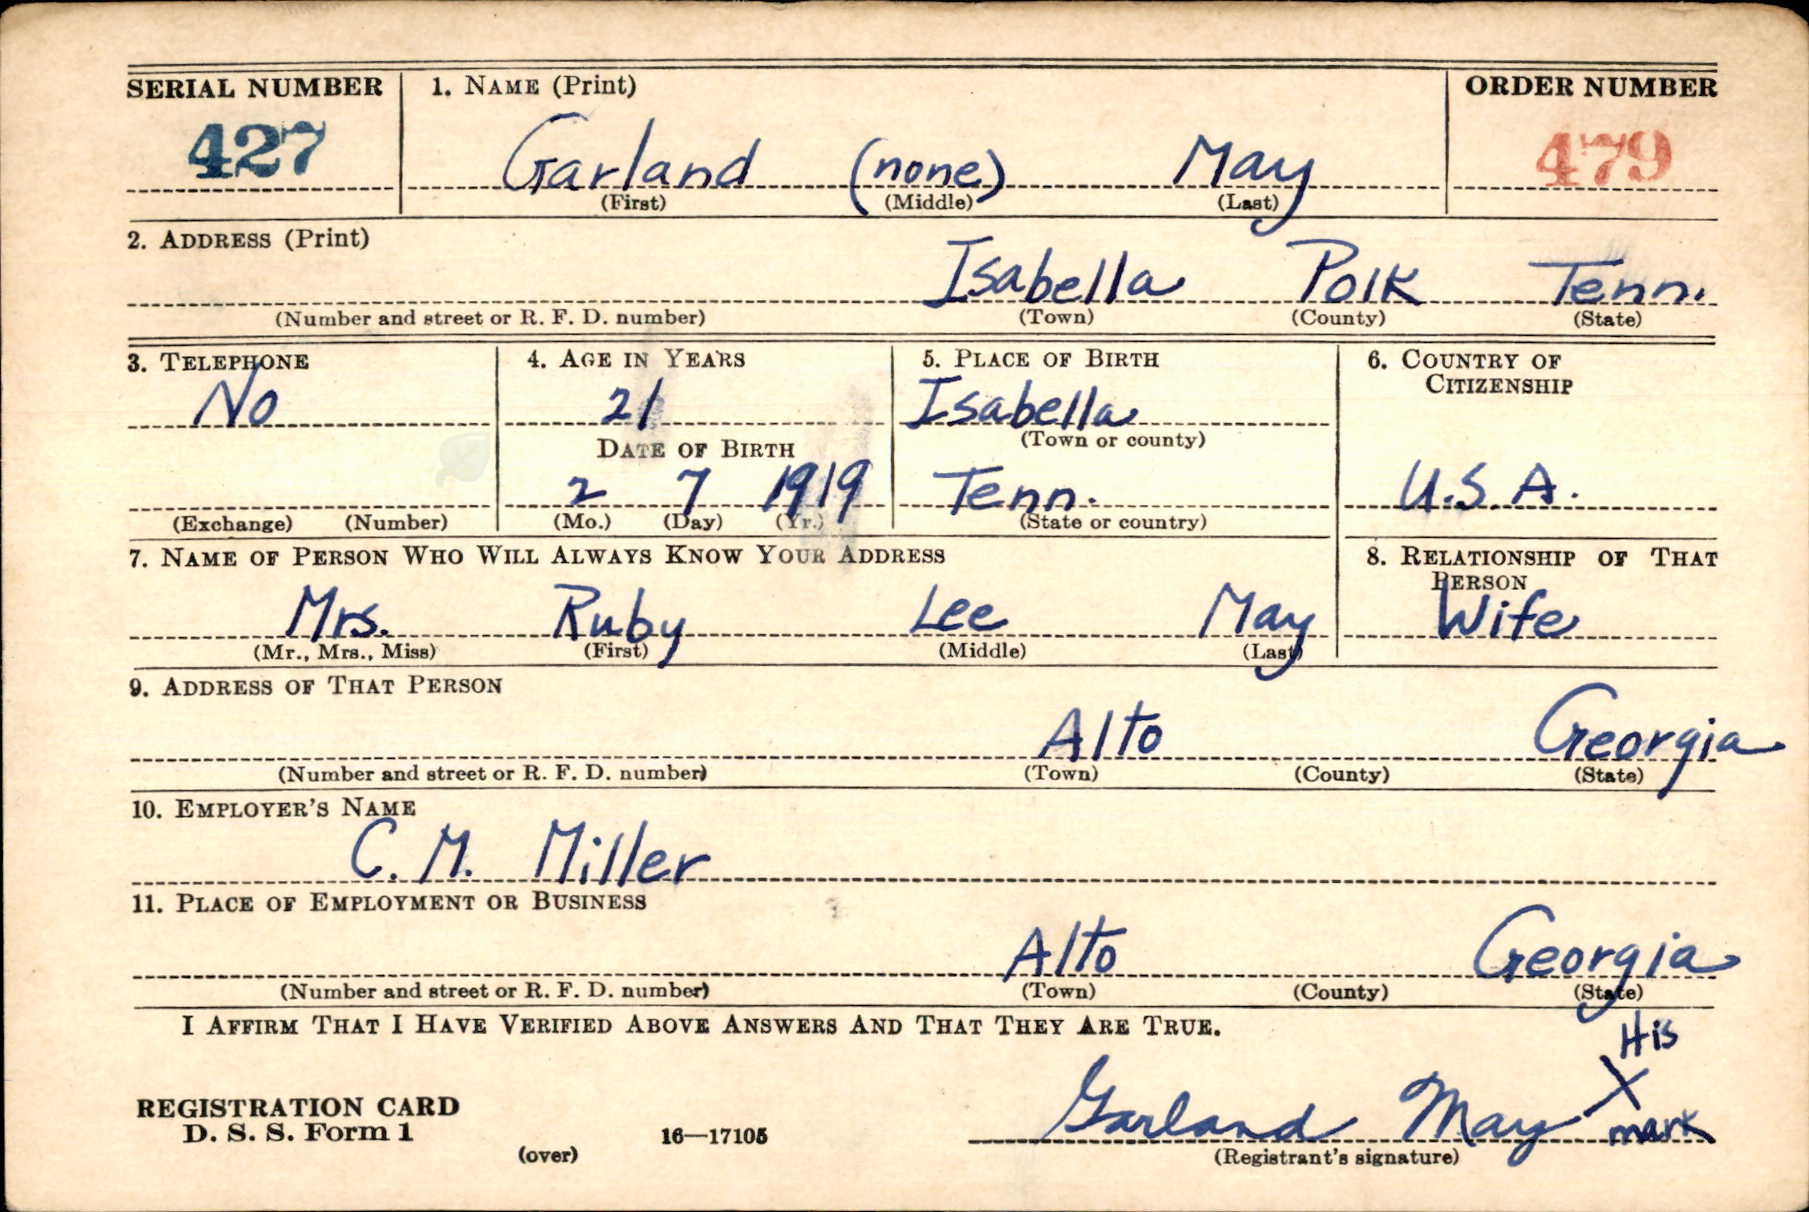 SERIAL NUMBER 1. NAME (Print) ORDER NUMBER
427 Garland (none) May 479
(First) (Middle) (Last)
2. ADDRESS (Print)
Isabella Polk Tenn.
(Number and street or R. F. D. number) (Town) (County) (State)
3. TELEPHONE 4. AGE IN YEARS 5. PLACE OF BIRTH 6. COUNTRY OF
CITIZENSHIP
No 21 Isabella
DATE OF BIRTH (Town or county)
2 7 1919 Tenn. U.S.A.
(Exchange) (Number) (Mo.) (Day) (Yr.) (State or country)
7. NAME OF PERSON WHO WILL ALWAYS KNOW YOUR ADDRESS 8. RELATIONSHIP OF THAT
PERSON
Mrs. Ruby Lee May Wife
(Mr., Mrs., Miss) (First) (Middle) (Last)
9. ADDRESS OF THAT PERSON
Alto Georgia
(Number and street or R. F. D. number) (Town) (County) (State)
10. EMPLOYER'S NAME
C. M. Miller
11. PLACE OF EMPLOYMENT OR BUSINESS
Alto Georgia
(Number and street or R. F. D. number) (Town) (County) (State)
I AFFIRM THAT I HAVE VERIFIED ABOVE ANSWERS AND THAT THEY ARE TRUE.
His
REGISTRATION CARD Garland May X
D. S. S. Form 1 16—17105 mark
(over) (Registrant's signature)